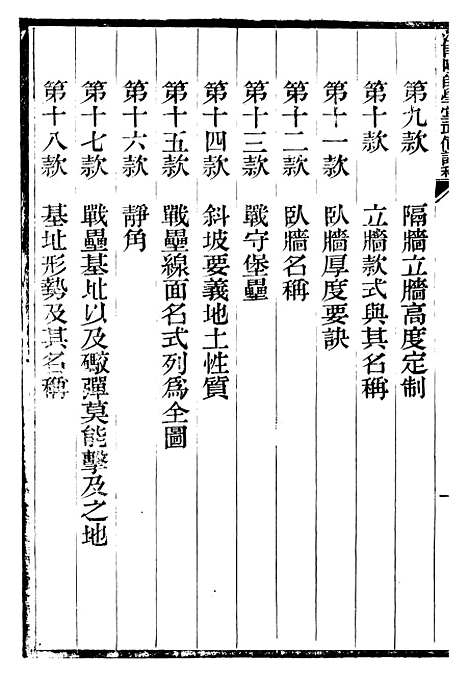 第九款　隔牆立牆高度定制
第十款　立牆款式與其名稱
第十一款　臥牆厚度要訣
第十二款　臥牆名稱
第十三款　戰守堡壘
第十四款　斜坡要義地土性質
第十五款　戰壘線面名式列爲全圖
第十六款　靜角
第十七款　戰壘基址以及礮彈莫能擊及之地
第十八款　基址形勢及其名稱